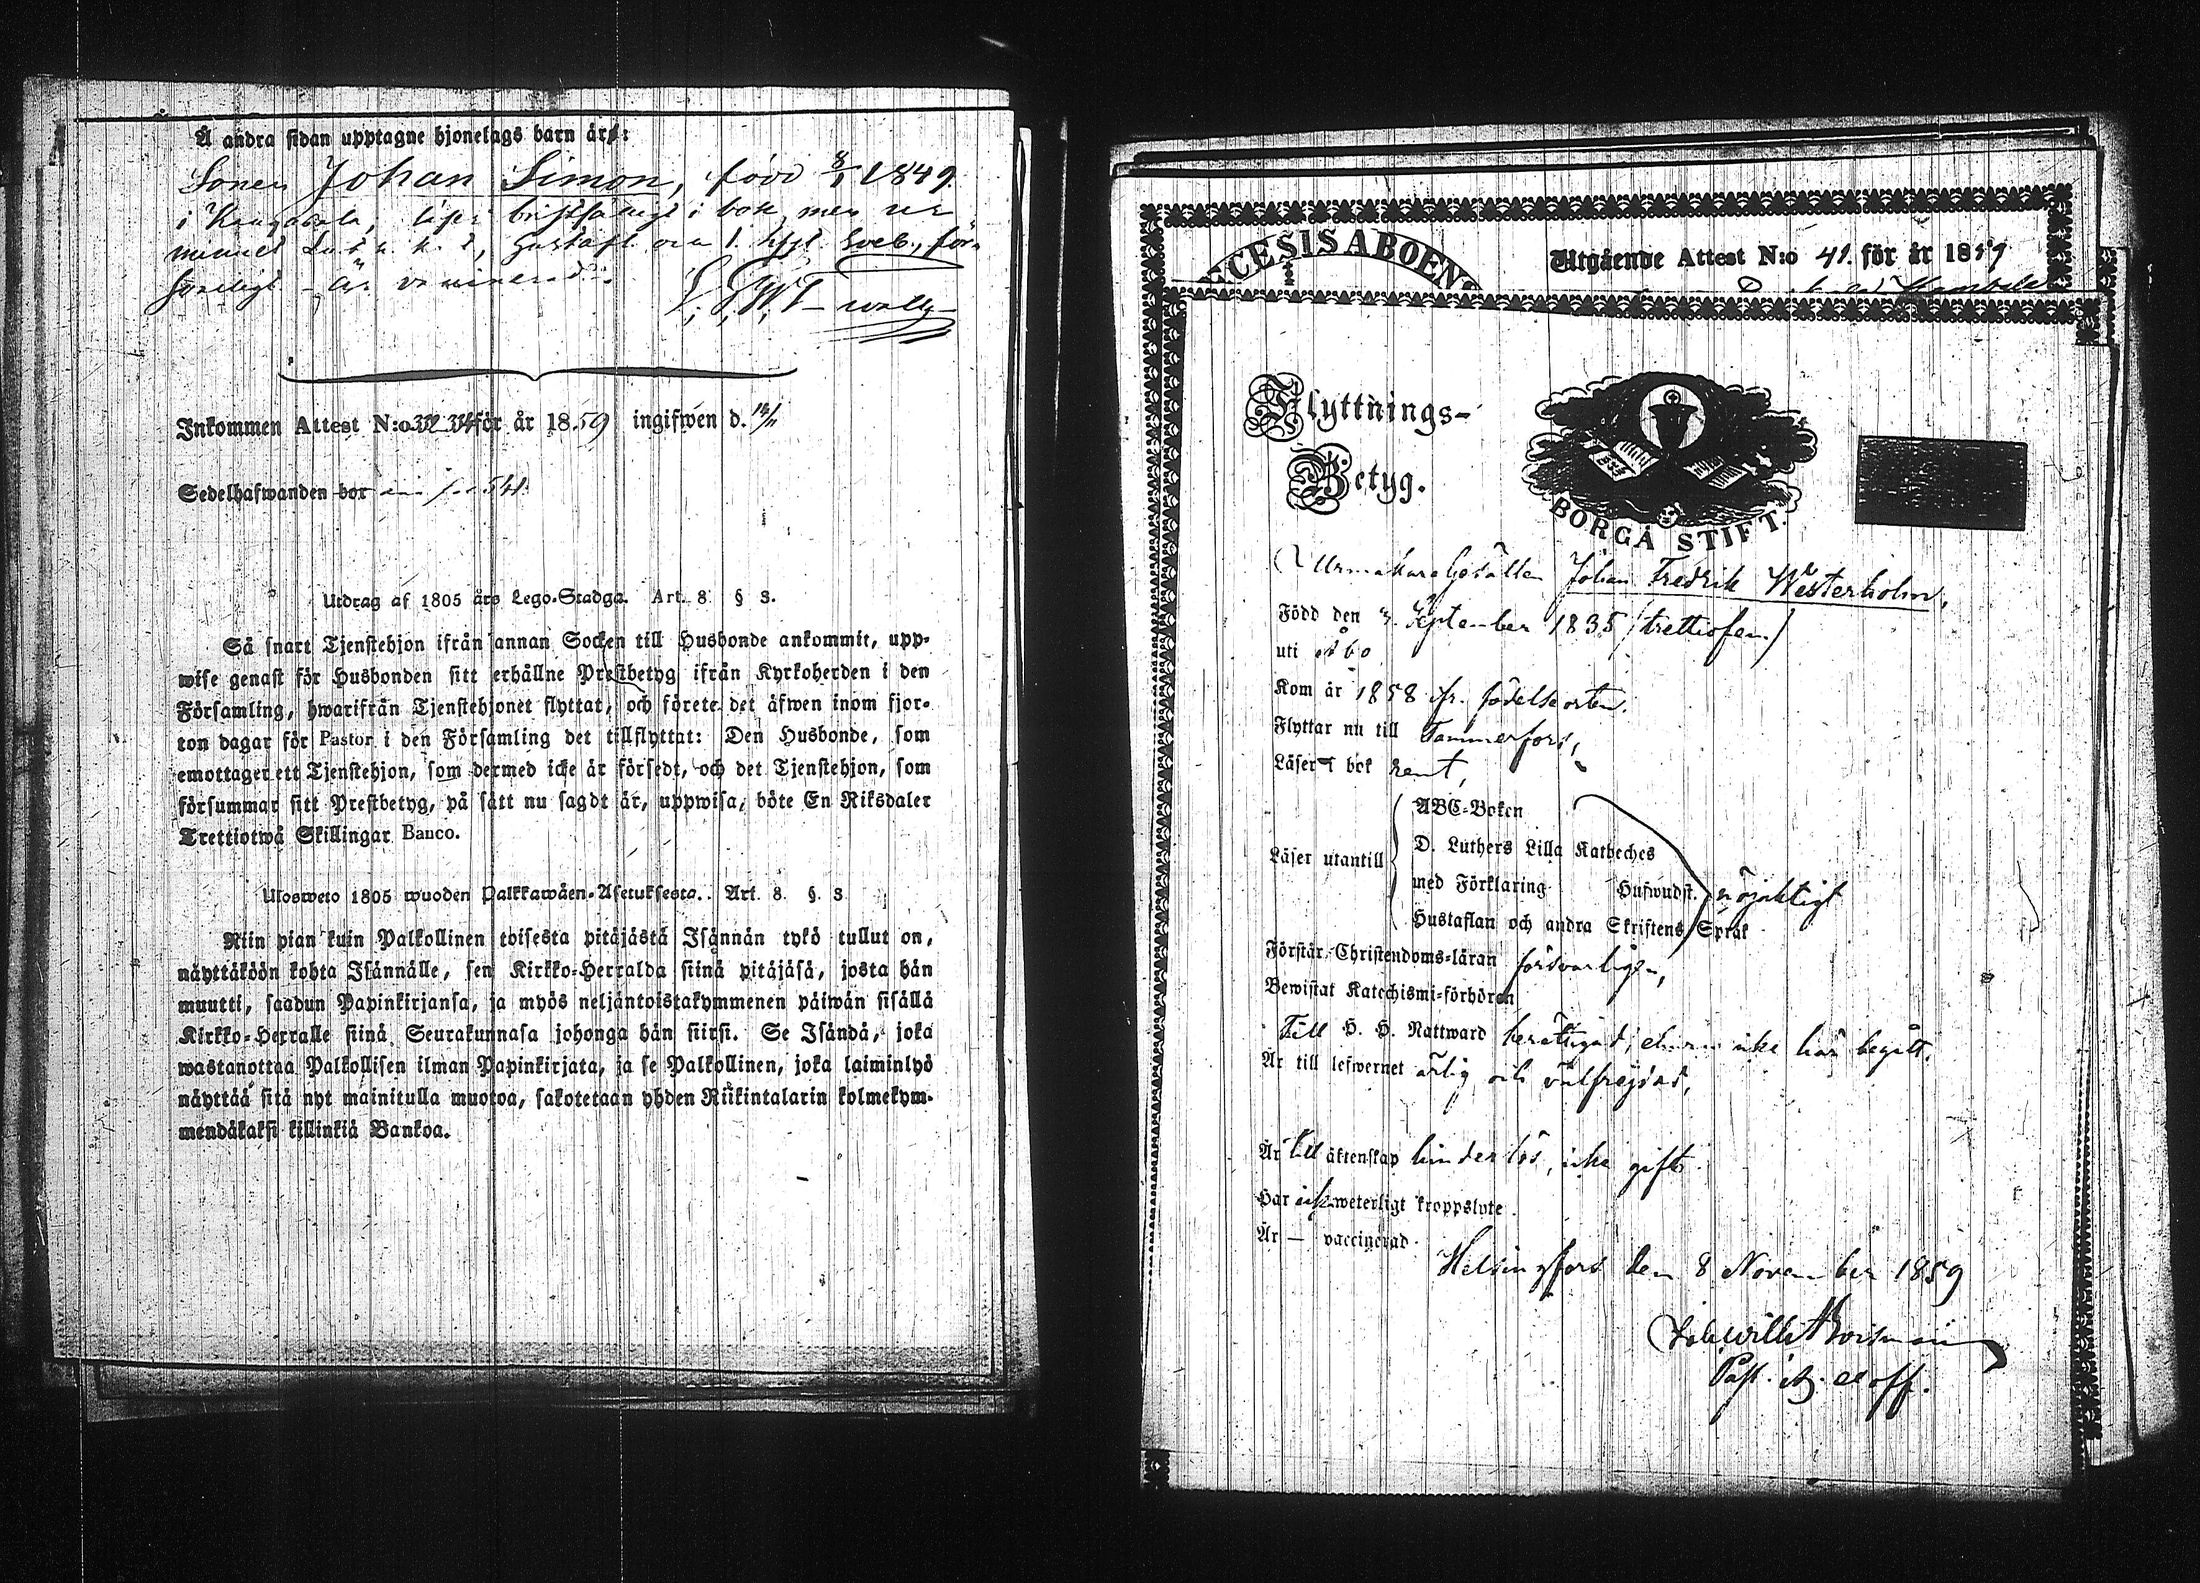 Å andra sidan upptagne hjonelags barn äro:
Sonen Johan Simon, född 8/1 1849.
i bok, men
Inkommen Attest N:o för år 1859 ingifwen d.
Sedelhafwanden bor 54.
Utdrag af 1805 års Lego-Stadga. Art. 8 § 3.
Så snart Tjenstehjon ifrån annan Socken till Husbonde ankommit, upp-
wise genast för Husbonden sitt erhållne Prestbetyg ifrån Kyrkoherden i den
Församling, hwarifrån Tjenstehjonet flyttat, och förete det äfwen inom fjor-
ton dagar för Pastor i den Församling det tillflyttat: Den Husbonde, som
emottager ett Tjenstehjon, som dermed icke är försedt, och det Tjenstehjon, som
försummar sitt Prestbetyg, på sätt nu sagdt är, uppwisa, böte En Riksdaler
Trettiotwå Skillingar Banco.
Ulosweto 1805 wuoden Palkkawäen-Asetuksesta. Art. 8. §. 3
Niin pian kuin Palkollinen toisesta pitäjästä Isännän tykö tullut on,
näyttäköön kohta Isännälle, sen Kirkko-Herralda siinä pitäjäsä, josta hän
muutti, saadun Papinkirjansa, ja myös neljäntoistakymmenen päiwän sisällä
Kirkko-Herralle siinä Seurakunnasa johonga hän siirsi. Se Isändä, joka
wastanottaa Palkollisen ilman Papinkirjata, ja se Palkollinen, joka laiminlyö
näyttää sitä nyt mainitulla muotoa, sakotetaan yhden Riikintalarin kolmekym-
mendäkaksi killinkiä Bankoa.
CESIS ABOEN
Utgående Attest N:o 41. för år 1859
Flyttnings-
Betyg.
BORGÅ STIFT.
Urmakare Gesällen Johan Fredrik Westerholm,
Född den September 1835 /trettiofem/
uti Åbo
Kom år 1858 fr. födelseorten.
Flyttar nu till Tammerfors,
Läser i bok rent,
Läser utantill
ABC-Boken
D. Luthers Lilla Katheches
med Förklaring Hufwudst. nöjaktigt
Hustaflan och andra Skriftens Språk
Förstår Christendoms-läran försvarligen,
Bewistat Katechismi-förhören
Till H. H. Nattward berättigad, icke här begått.
Är till lefwernet ärlig och välfrejdad,
Är till äktenskap hinderlös, icke gift.
Har icke weterligt kroppslyte.
Är — vaccinerad.
Helsingfors den 8 November 1859
Past. off.